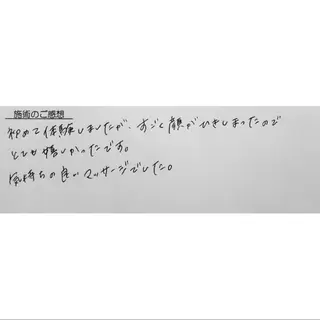 施術のご感想
初めて体験しましたが、すごく顔がひきしまったので
とても嬉しかったです。
気持ちの良いマッサージでした。